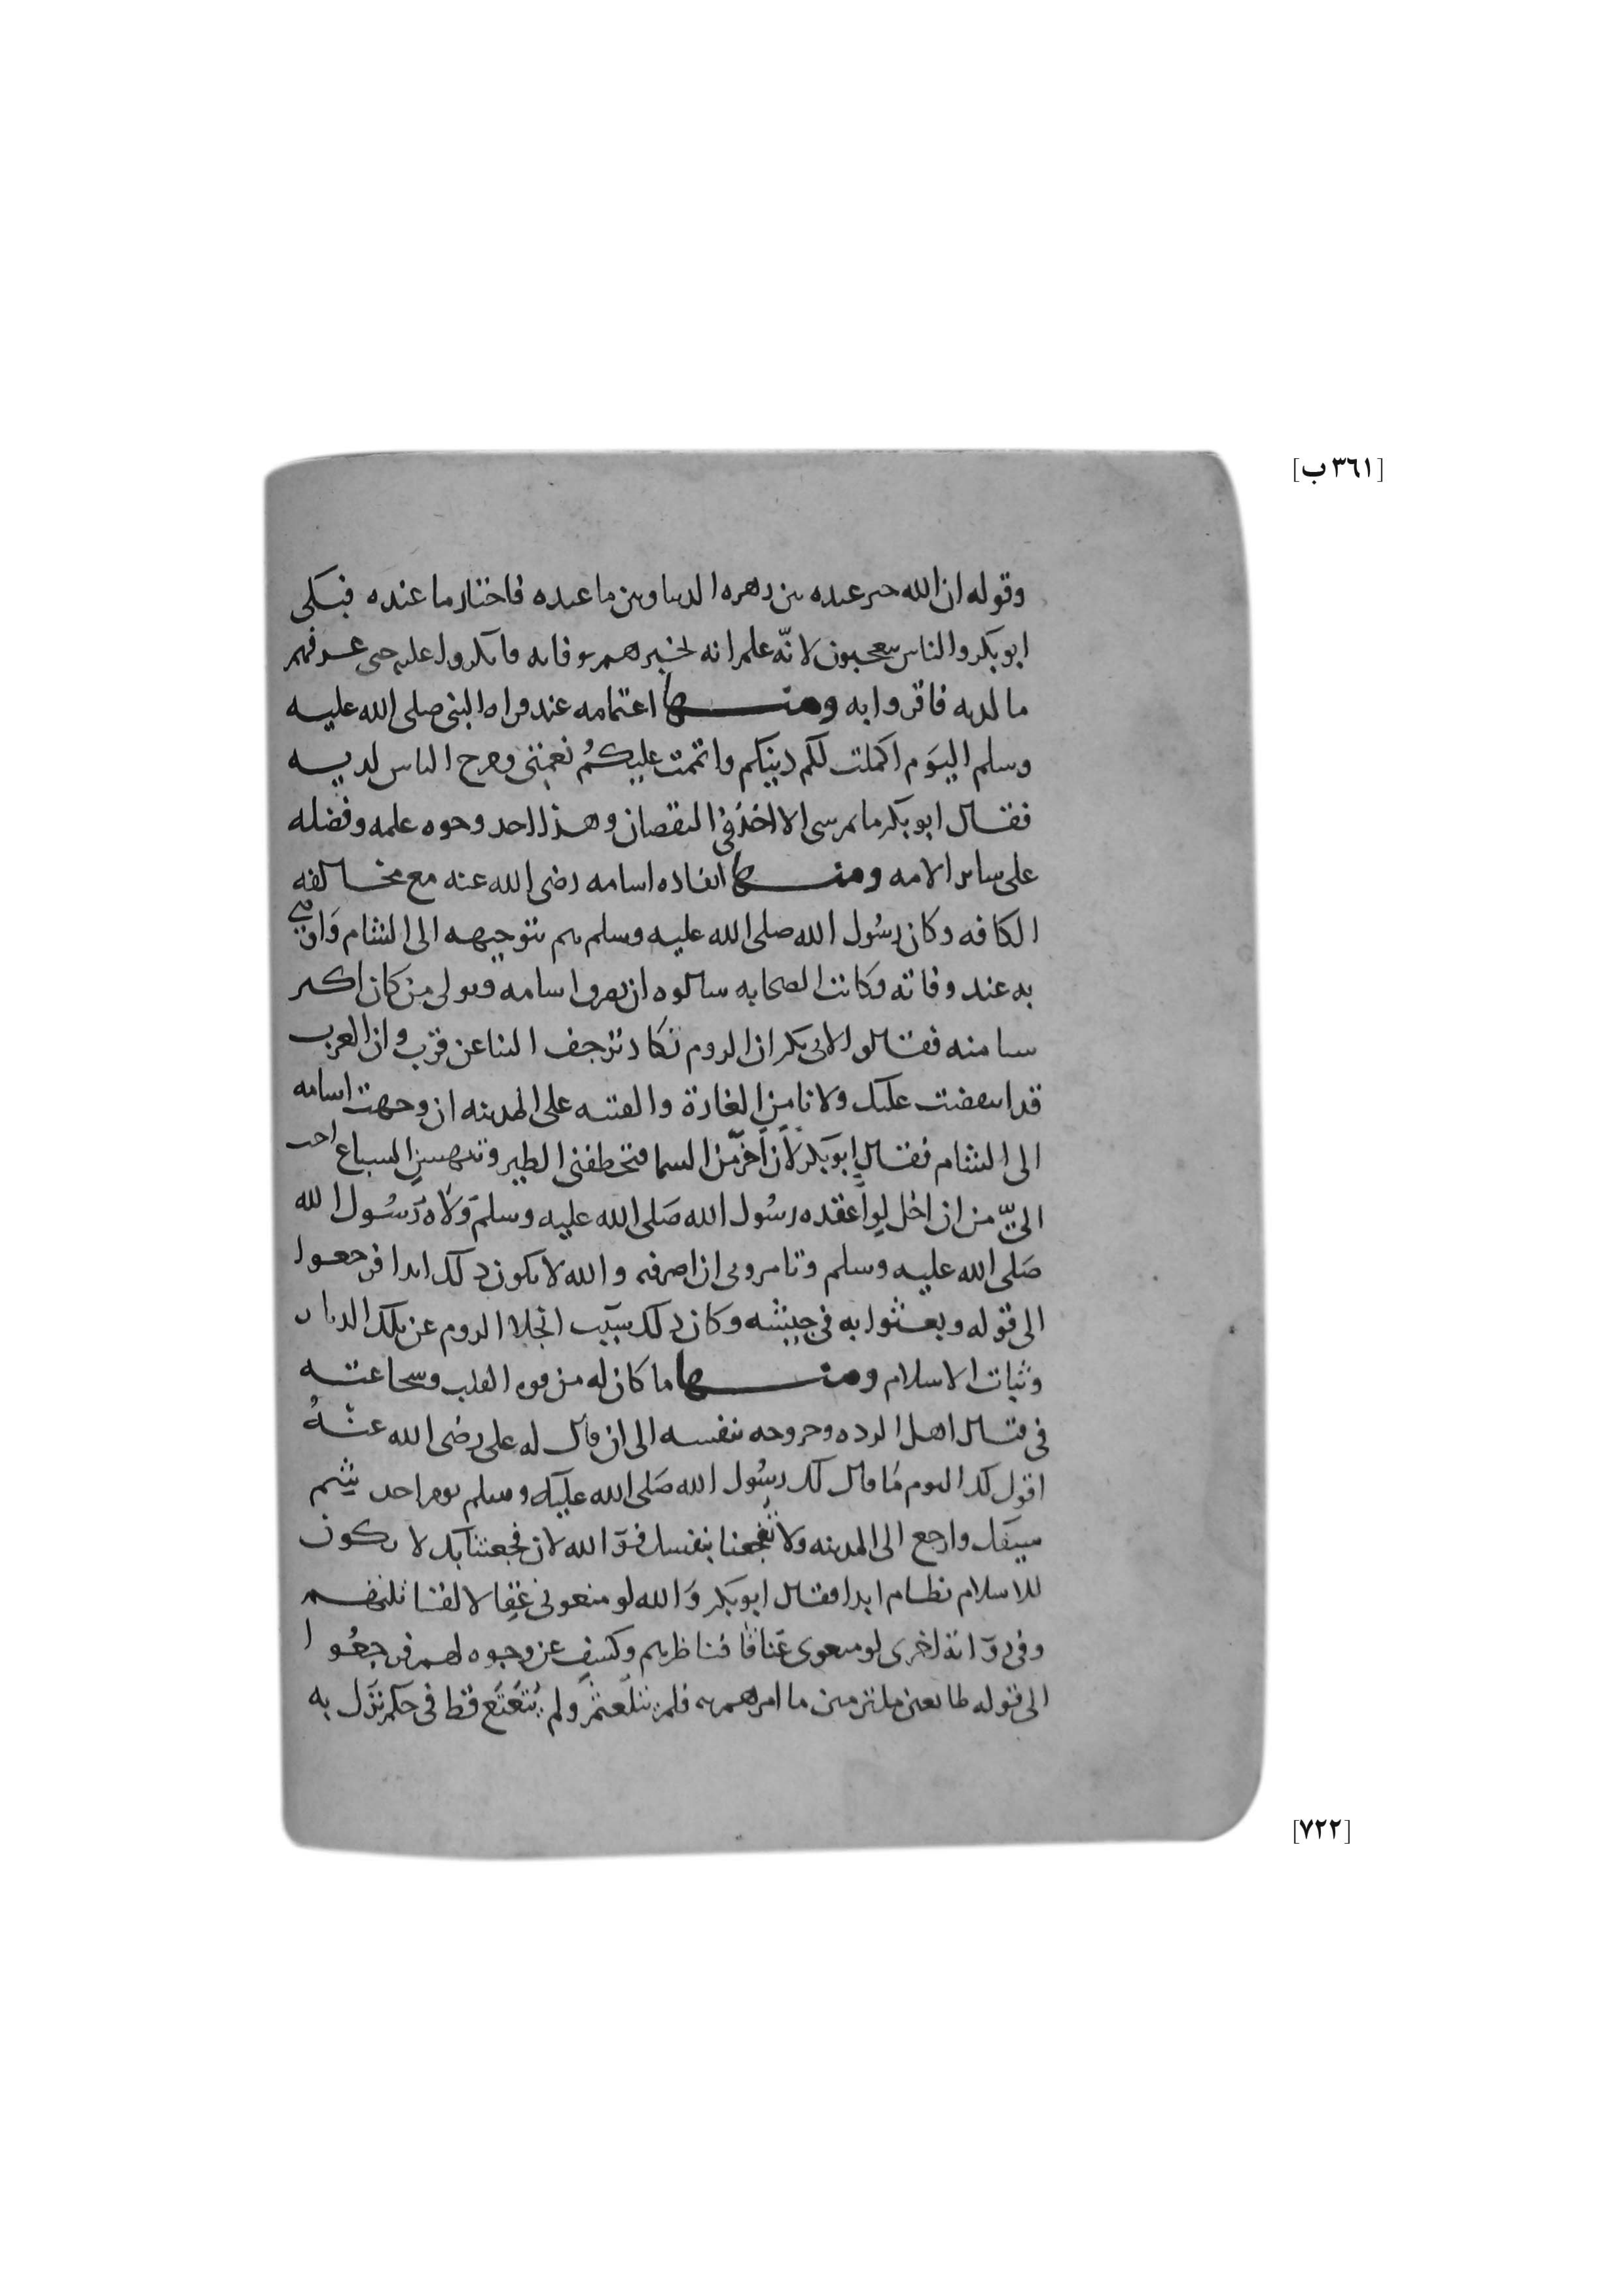 [٣٦١ ب]
وقوله ان الله خير عبده بين زهره الدنيا وبين ما عنده فاختار ما عنده فبكى
ابو بكر والناس يتعجبون لانّه علم انه يخبرهم بوفاته فانكروا عليه حتى عرفهم
ما لديه فاقروا به ومنها اغتمامه عند قراه النبى صلى الله عليه
وسلم اليَوم اكملت لكم دينكم واتممت عليكمُ نعمتى وفرح الناس لديه
فقال ابو بكر ما تم شى الا اخذ فى النقصان وهذا احد وجوه علمه وفضله
على ساير الامه ومنها انفاده اسامه رضى الله عنه مع مخالفه
الكافه وكان رسُول الله صلى الله عليه وسلم هم بتوجيهه الى الشام وَاوصى
به عند وفاته وكانت الصحابه سالوه ان يصرف اسامه ويولى من كان اكبر
سنا منه فقالوا لابى بكر ان الروم تكاد تزحف الينا عن قرب وان العرب
قد انتقضت عليك ولا نامن الغارة والفتنه على المدينه ان وجهت اسامه
الى الشام فقال ابو بكر لأن أخرّ من السما فتخطفنى الطير وتنهسنى السباع احب
الىّ من ان احل لوا عقده رسُول الله صَلى الله عليه وسلم وَلاه رَسُول الله
صَلى الله عليه وسلم وتامرونى ان اصرفه والله لا يكون ذلك ابدا فرجعوا
الى قوله وبعثوا به فى جيشه وكان ذلك سبَب انجلا الروم عن تلك الديار
وثبات الاسلام ومنها ما كان له من قوه القلب وشجاعته
فى قتال اهل الرده وخروجه بنفسه الى ان قال له على رضى الله عنهُ
اقول لك اليوم مَا قال لك رسُول الله صَلى الله عليَه وسلم يوم احد شِم
سيفك وارجع الى المدينه ولا تفجعنا بنفسك فوَ الله لان فجعنا بك لا يكون
للاسلام نظام ابدا فقال ابو بكر وَالله لو منعونى عِقالا لقاتلتهم
وفى روَاية اخرى لو منعونى عَناقا فناظرهم وكشف عن وجوه لهم فرجعُوا
الى قوله طايعين ملتزمين ما امرهم به فلم يتلعثم ولم يُتَعتَع قط فى حكم نزَل به
[٧٢٢]